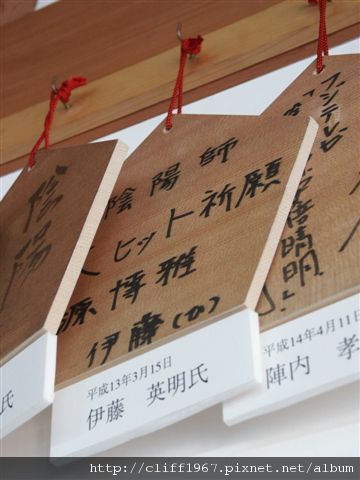 陰陽
氏
陰陽師
大ヒット祈願
源博雅
伊藤(か)
平成13年3月15日
伊藤 英明氏
フジテレビ
晴明
平成14年4月11日
陣内 孝
http://cliff1967.pixnet.net/album